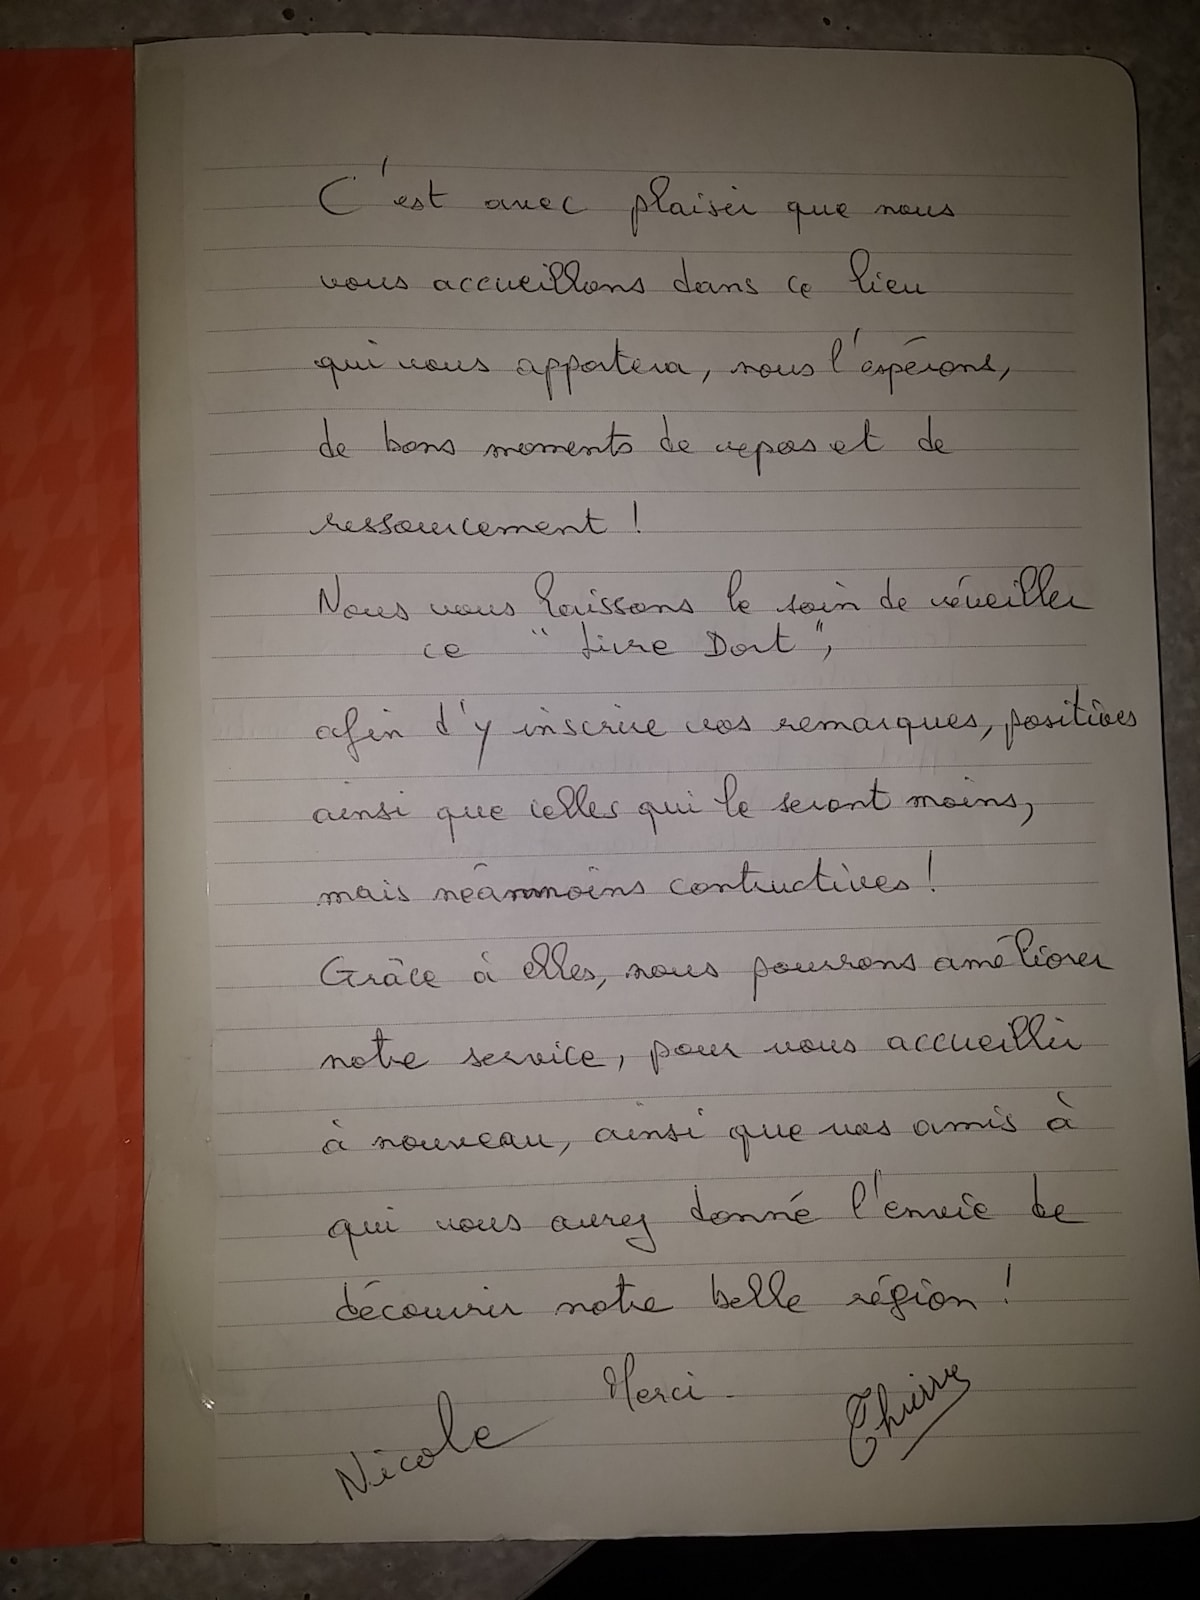 C'est avec plaisir que nous
vous accueillons dans ce lieu
qui vous apportera, nous l'espérons,
de bons moments de repos et de
ressourcement !
Nous vous laissons le soin de réveiller
ce "Livre Dort",
afin d'y inscrire vos remarques, positives
ainsi que celles qui le seront moins,
mais néanmoins contructives !
Grâce à elles, nous pourrons améliorer
notre service, pour vous accueillir
à nouveau, ainsi que vos amis à
qui vous aurez donné l'envie de
découvrir notre belle région !
Merci.
Nicole
Thierry